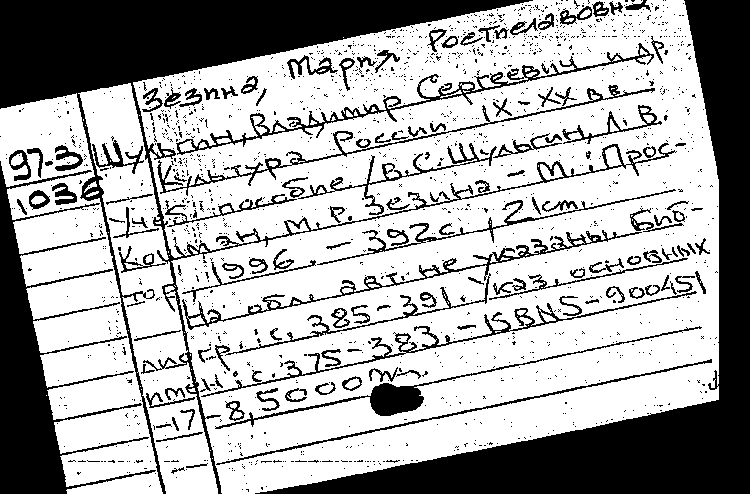 Зезина, Мария Ростиславовна
97-3
1036
Шульгин, Владимир Сергеевич и др.
Культура России IX-XX вв.:
Учеб. пособие / В.С. Шульгин, Л.В.
Кошман, М.Р. Зезина. - М.: Прос-
тор, 1996. - 392с.; 21см.
На обл. авт. не указаны. Биб-
лиогр.: с. 385-391. Указ. основных
имен: с. 375-383. - ISBN5-900451
-17-8, 5000